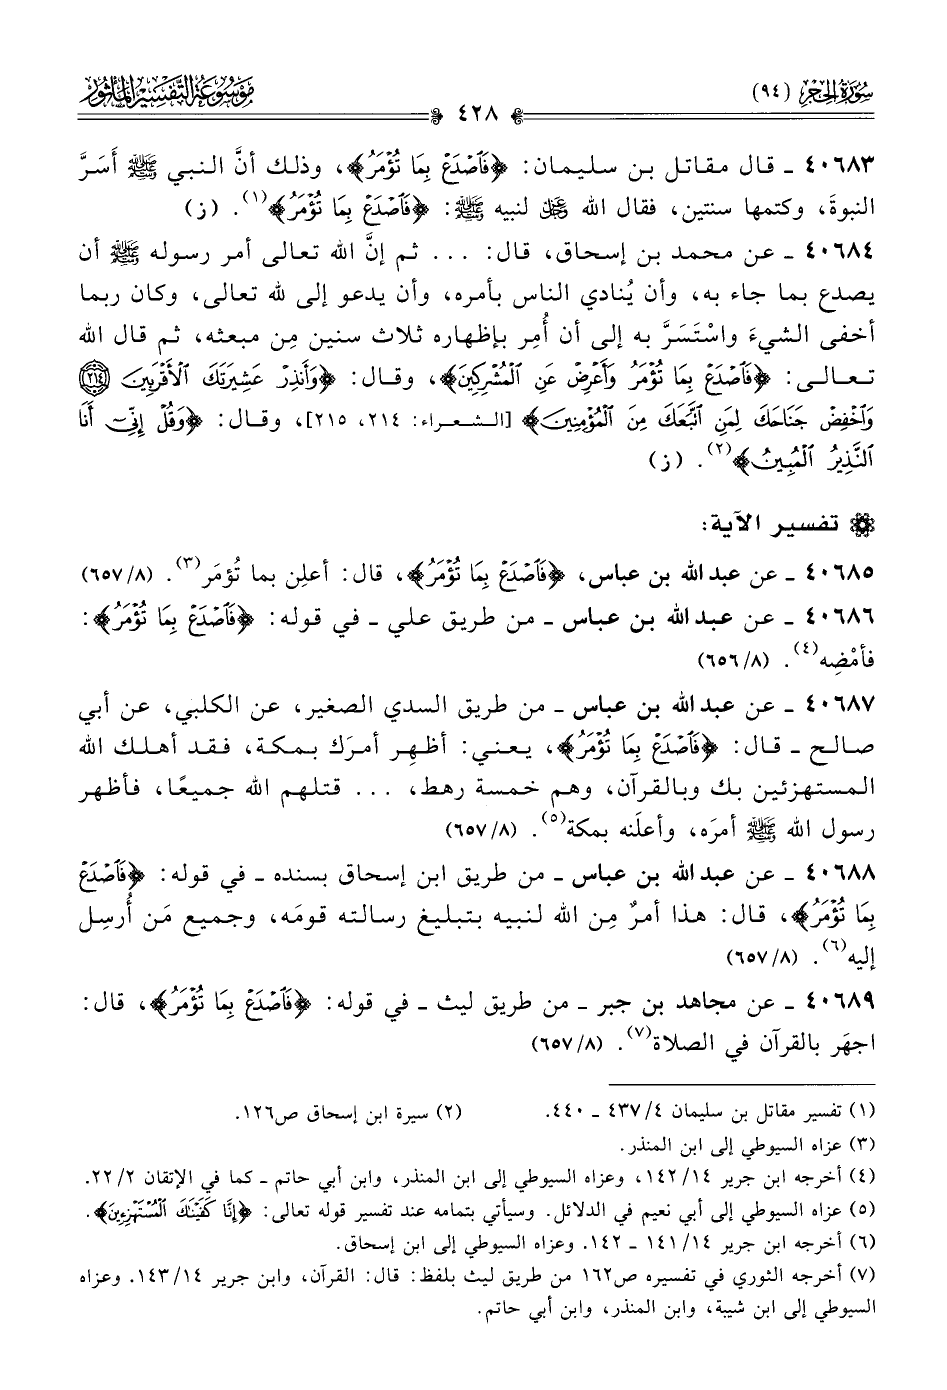 سُورَةُ الحِجْرِ (٩٤)
٤٢٨
مَوْسُوعَةُ التَّفْسِيرِ المَأْثُور
٤٠٦٨٣ ـ قال مقاتل بن سليمان: ﴿فَٱصْدَعْ بِمَا تُؤْمَرُ﴾، وذلك أنَّ النبي ﷺ أَسَرَّ
النبوةَ، وكتمها سنتين، فقال الله ﷻ لنبيه ﷺ: ﴿فَٱصْدَعْ بِمَا تُؤْمَرُ﴾(١). (ز)
٤٠٦٨٤ ـ عن محمد بن إسحاق، قال: ... ثم إنَّ الله تعالى أمر رسوله ﷺ أن
يصدع بما جاء به، وأن يُنادي الناس بأمره، وأن يدعو إلى لله تعالى، وكان ربما
أخفى الشيءَ واسْتَسَرَّ به إلى أن أُمِر بإظهاره ثلاث سنين مِن مبعثه، ثم قال الله
تعالى: ﴿فَٱصْدَعْ بِمَا تُؤْمَرُ وَأَعْرِضْ عَنِ ٱلْمُشْرِكِينَ﴾، وقال: ﴿وَأَنذِرْ عَشِيرَتَكَ ٱلْأَقْرَبِينَ ٢١٤
وَٱخْفِضْ جَنَاحَكَ لِمَنِ ٱتَّبَعَكَ مِنَ ٱلْمُؤْمِنِينَ﴾ [الشعراء: ٢١٤، ٢١٥]، وقال: ﴿وَقُلْ إِنِّىٓ أَنَا
ٱلنَّذِيرُ ٱلْمُبِينُ﴾(٢). (ز)
تفسير الآية:
٤٠٦٨٥ ـ عن عبد الله بن عباس، ﴿فَٱصْدَعْ بِمَا تُؤْمَرُ﴾، قال: أعلِن بما تُؤمَر(٣). (٦٥٧/٨)
٤٠٦٨٦ ـ عن عبد الله بن عباس ـ من طريق علي ـ في قوله: ﴿فَٱصْدَعْ بِمَا تُؤْمَرُ﴾:
فأمْضِه(٤). (٦٥٦/٨)
٤٠٦٨٧ ـ عن عبد الله بن عباس ـ من طريق السدي الصغير، عن الكلبي، عن أبي
صالح ـ قال: ﴿فَٱصْدَعْ بِمَا تُؤْمَرُ﴾، يعني: أظهِر أمرَك بمكة، فقد أهلك الله
المستهزئين بك وبالقرآن، وهم خمسة رهط، ... قتلهم الله جميعًا، فأظهر
رسول الله ﷺ أمرَه، وأعلَنه بمكة(٥). (٦٥٧/٨)
٤٠٦٨٨ ـ عن عبد الله بن عباس ـ من طريق ابن إسحاق بسنده ـ في قوله: ﴿فَٱصْدَعْ
بِمَا تُؤْمَرُ﴾، قال: هذا أمرٌ مِن الله لنبيه بتبليغ رسالته قومَه، وجميع مَن أُرسِل
إليه(٦). (٦٥٧/٨)
٤٠٦٨٩ ـ عن مجاهد بن جبر ـ من طريق ليث ـ في قوله: ﴿فَٱصْدَعْ بِمَا تُؤْمَرُ﴾، قال:
اجهَر بالقرآن في الصلاة(٧). (٦٥٧/٨)
(١) تفسير مقاتل بن سليمان ٤٣٧/٤ ـ ٤٤٠. (٢) سيرة ابن إسحاق ص١٢٦.
(٣) عزاه السيوطي إلى ابن المنذر.
(٤) أخرجه ابن جرير ١٤٢/١٤، وعزاه السيوطي إلى ابن المنذر، وابن أبي حاتم ـ كما في الإتقان ٢٢/٢.
(٥) عزاه السيوطي إلى أبي نعيم في الدلائل. وسيأتي بتمامه عند تفسير قوله تعالى: ﴿إِنَّا كَفَيْنَٰكَ ٱلْمُسْتَهْزِءِينَ﴾.
(٦) أخرجه ابن جرير ١٤١/١٤ ـ ١٤٢. وعزاه السيوطي إلى ابن إسحاق.
(٧) أخرجه الثوري في تفسيره ص١٦٢ من طريق ليث بلفظ: قال: القرآن، وابن جرير ١٤٣/١٤. وعزاه
السيوطي إلى ابن شيبة، وابن المنذر، وابن أبي حاتم.